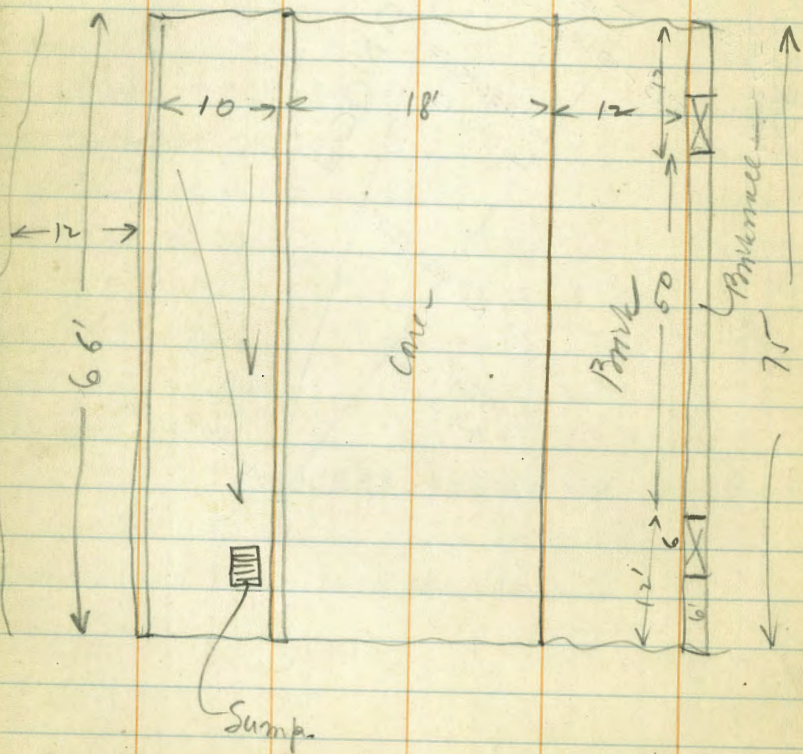 10
18'
12
12
12
66'
Conc
Brick
50
Brickwall
75
6
12'
6'
Sump.